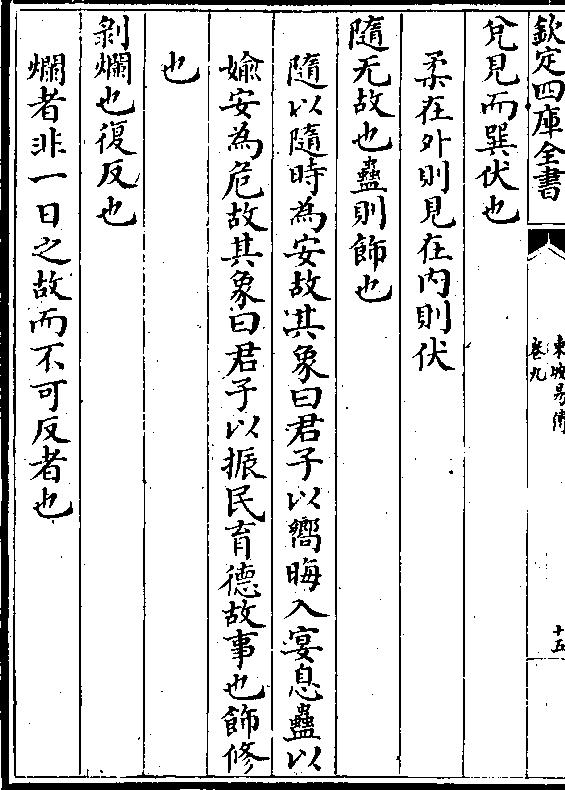 欽定四庫全書
東坡易傳
卷九
十五
兌見而巽伏也
柔在外則見在内則伏
隨无故也蠱則飾也
隨以隨時為安故其象曰君子以嚮晦入宴息蠱以
媮安為危故其象曰君子以振民育德故事也飾修
也
剝爛也復反也
爛者非一日之故而不可反者也